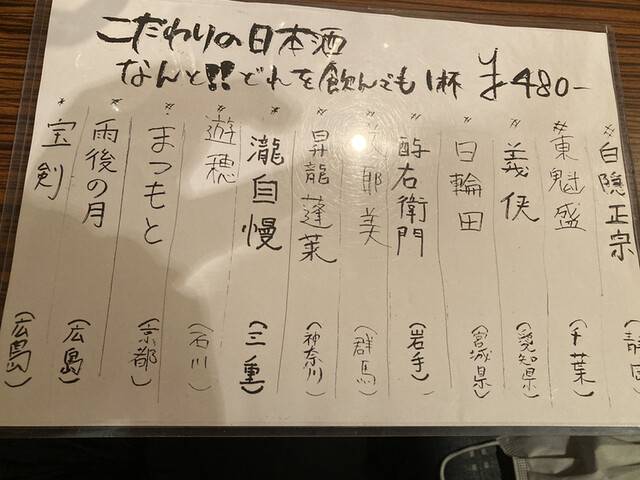 こだわりの日本酒
なんと!!どれを飲んでも1杯 ¥480-
白隠正宗
東魁盛 (千葉)
義侠 (愛知県)
日輪田 (宮城県)
酔右衛門 (岩手)
耶美 (群馬)
昇龍蓬莱 (神奈川)
瀧自慢 (三重)
遊穂 (石川)
まつもと (京都)
雨後の月 (広島)
宝剣 (広島)